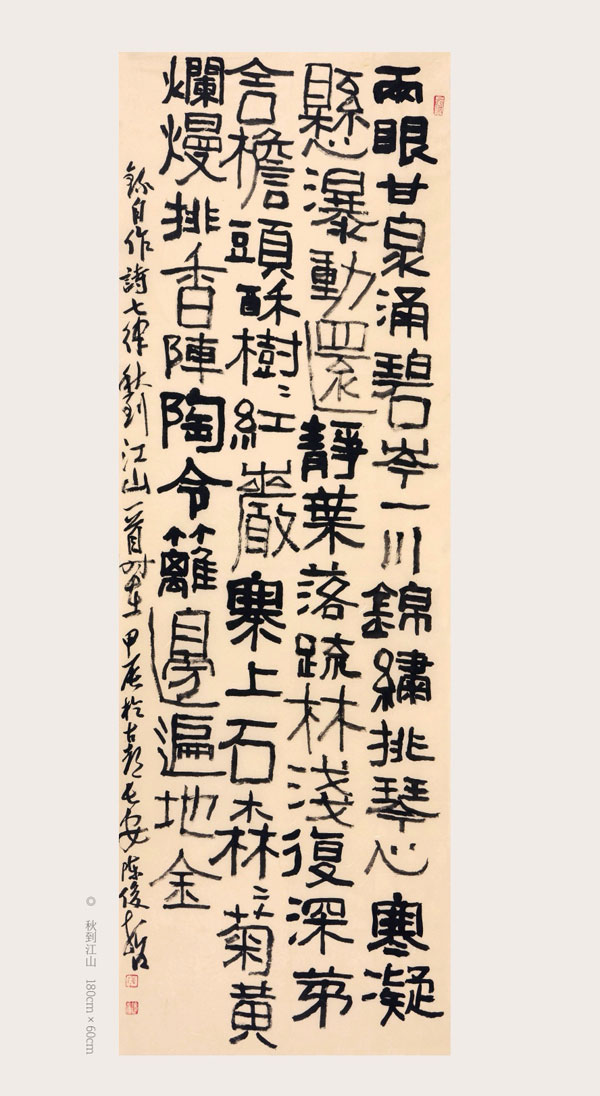 兩眼甘泉涌碧岑一川錦繡挑琴心寒凝
懸瀑動還靜葉落䟽林淺復深茅
舍檐頭酥樹〻紅巖寨上石森〻菊黃
爛熳排香陣陶令籬邊遍地金
錄自作詩七律秋到江山一首时在甲辰於古都長安陳俊哲
◎ 秋到江山 180cm×60cm